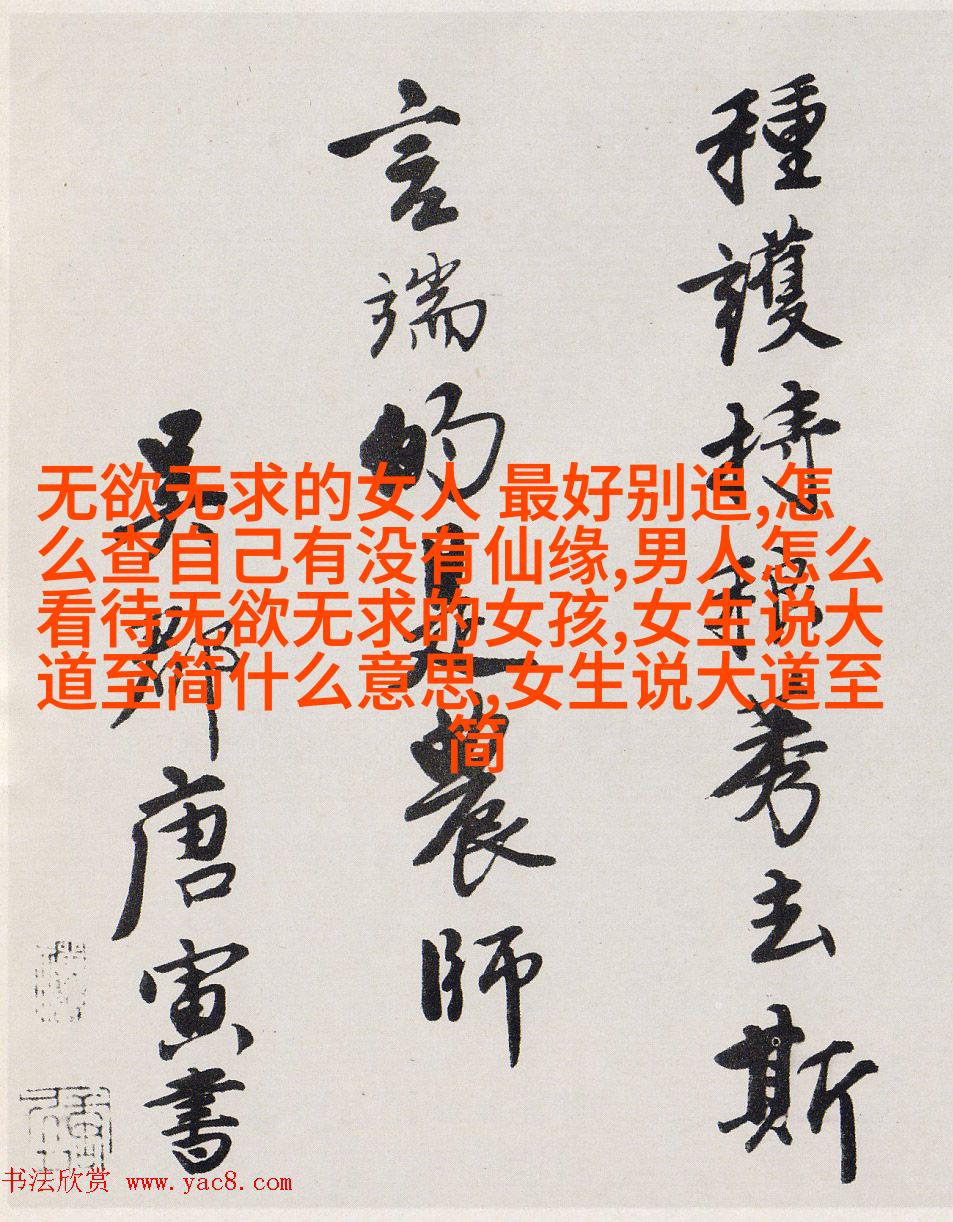 種護持稂莠去斯
言端的是農師
吳郡唐寅書
无欲无求的女人 最好别追,怎
么查自己有没有仙缘,男人怎么
看待无欲无求的女孩,女生说大
道至简什么意思,女生说大道至
简
书法欣赏 www.yac8.com